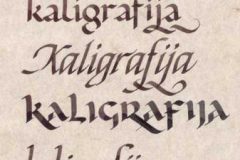 kaligrafija
Kaligrafija
kaLIGRAFIJA